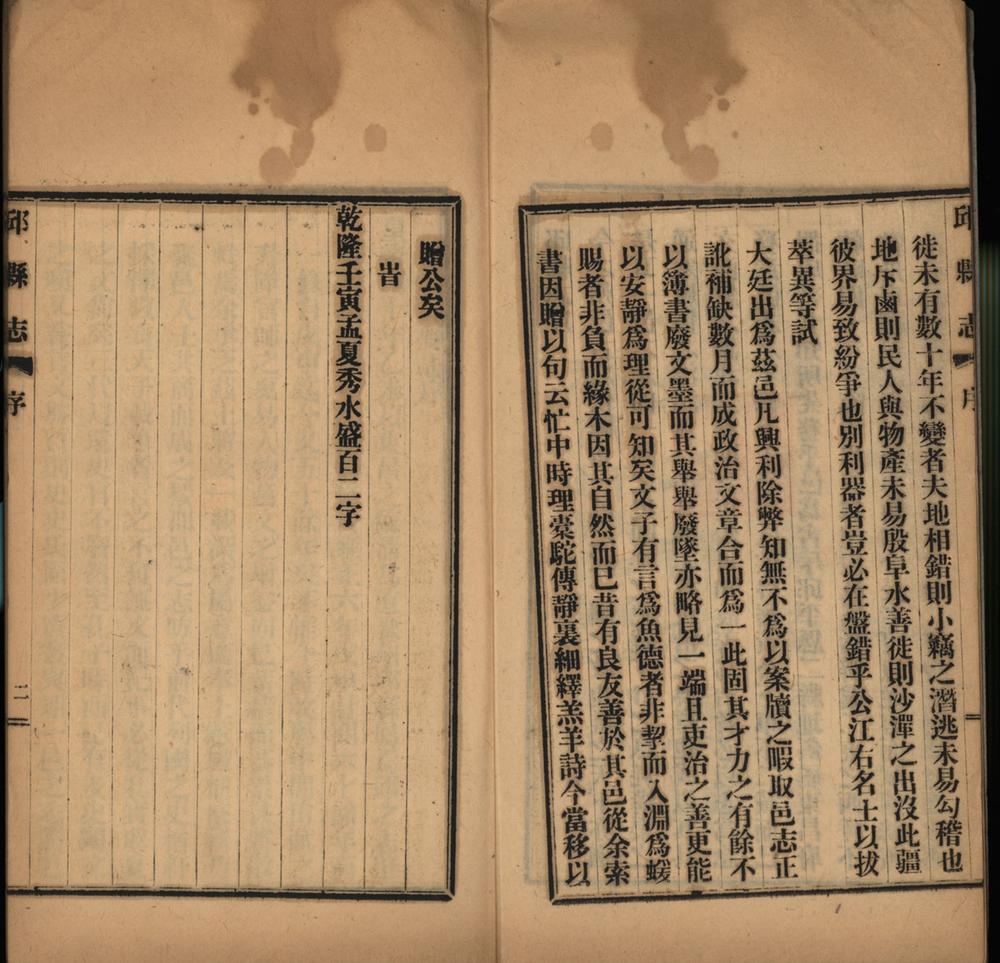 邱縣志 序
徙未有數十年不變者夫地相錯則小竊之潛逃未易勾稽也
地斥鹵則民人與物產未易殷阜水善徙則沙渾之出沒此疆
彼界易致紛爭也別利器者豈必在盤錯乎公江右名士以拔
萃異等試
大廷出爲茲邑凡興利除弊知無不爲以案牘之暇取邑志正
訛補缺數月而成政治文章合而爲一此固其才力之有餘不
以簿書廢文墨而其舉舉廢墜亦略見一端且吏治之善更能
以安靜爲理從可知矣文子有言爲魚德者非挈而入淵爲蝯
賜者非負而緣木因其自然而已昔有良友善於其邑從余索
書因贈以句云忙中時理槖駝傳靜裏細繹羔羊詩今當移以
贈公矣
旹
乾隆壬寅孟夏秀水盛百二字
邱縣志 序 二